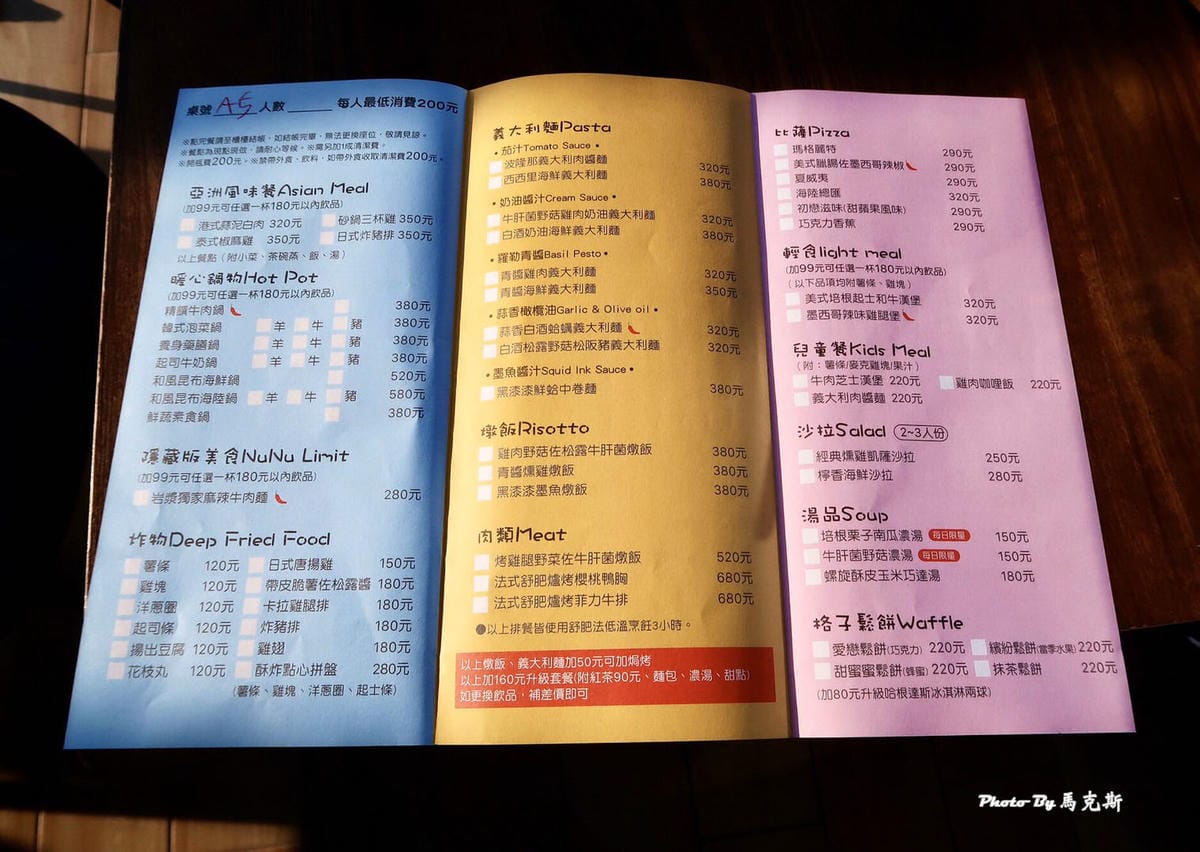 桌號 A5 人數 每人最低消費200元
※點完餐請至櫃檯結帳，如結帳完畢，無法更換座位，敬請見諒。
※餐點為現點現做，請耐心等候。※需另加1成清潔費。
※開瓶費200元。※禁帶外食、飲料，如帶外食收取清潔費200元。
亞洲風味餐Asian Meal
(加99元可任選一杯180元以內飲品)
港式蒜泥白肉 320元 砂鍋三杯雞 350元
泰式椒麻雞 350元 日式炸豬排 350元
以上餐點（附小菜、茶碗蒸、飯、湯）
暖心鍋物Hot Pot
(加99元可任選一杯180元以內飲品)
精饌牛肉鍋 380元
韓式泡菜鍋 羊 牛 豬 380元
養身藥膳鍋 羊 牛 豬 380元
起司牛奶鍋 羊 牛 豬 380元
和風昆布海鮮鍋 520元
和風昆布海陸鍋 羊 牛 豬 580元
鮮蔬素食鍋 380元
隱藏版美食NuNu Limit
(加99元可任選一杯180元以內飲品)
岩漿獨家麻辣牛肉麵 280元
炸物Deep Fried Food
薯條 120元 日式唐揚雞 150元
雞塊 120元 帶皮脆薯佐松露醬 180元
洋蔥圈 120元 卡拉雞腿排 180元
起司條 120元 炸豬排 180元
揚出豆腐 120元 雞翅 180元
花枝丸 120元 酥炸點心拼盤 280元
(薯條、雞塊、洋蔥圈、起士條)
義大利麵Pasta
• 茄汁Tomato Sauce •
波隆那義大利肉醬麵 320元
西西里海鮮義大利麵 380元
• 奶油醬汁Cream Sauce •
牛肝菌野菇雞肉奶油義大利麵 320元
白酒奶油海鮮義大利麵 380元
• 羅勒青醬Basil Pesto •
青醬雞肉義大利麵 320元
青醬海鮮義大利麵 350元
• 蒜香橄欖油Garlic & Olive oil •
蒜香白酒蛤蠣義大利麵 320元
白酒松露野菇松阪豬義大利麵 320元
• 墨魚醬汁Squid Ink Sauce •
黑漆漆鮮蛤中卷麵 380元
燉飯Risotto
雞肉野菇佐松露牛肝菌燉飯 380元
青醬燻雞燉飯 380元
黑漆漆墨魚燉飯 380元
肉類Meat
烤雞腿野菜佐牛肝菌燉飯 520元
法式舒肥爐烤櫻桃鴨胸 680元
法式舒肥爐烤菲力牛排 680元
●以上排餐皆使用舒肥法低溫烹飪3小時。
以上燉飯、義大利麵加50元可加焗烤
以上加160元升級套餐(附紅茶90元、麵包、濃湯、甜點)
如更換飲品，補差價即可
比薩Pizza
瑪格麗特 290元
美式臘腸佐墨西哥辣椒 290元
夏威夷 290元
海陸總匯 320元
初戀滋味(甜蘋果風味) 290元
巧克力香蕉 290元
輕食light meal
(加99元可任選一杯180元以內飲品)
(以下品項均附薯條、雞塊)
美式培根起士和牛漢堡 320元
墨西哥辣味雞腿堡 320元
兒童餐Kids Meal
(附：薯條/麥克雞塊/果汁)
牛肉芝士漢堡 220元 雞肉咖哩飯 220元
義大利肉醬麵 220元
沙拉Salad 2~3人份
經典燻雞凱薩沙拉 250元
檸香海鮮沙拉 280元
湯品Soup
培根栗子南瓜濃湯 每日限量 150元
牛肝菌野菇濃湯 每日限量 150元
螺旋酥皮玉米巧達湯 180元
格子鬆餅Waffle
愛戀鬆餅(巧克力) 220元 繽紛鬆餅(當季水果) 220元
甜蜜蜜鬆餅(蜂蜜) 220元 抹茶鬆餅 220元
(加80元升級哈根達斯冰淇淋兩球)
Photo By 馬克斯